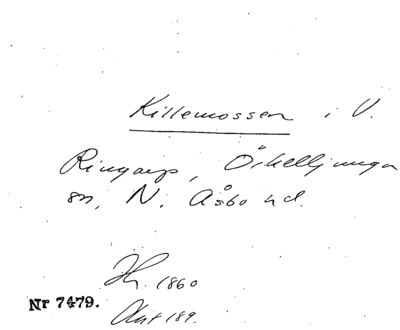 Killemossen i V.
Ringarp, Örkelljunga
sn, N. Åsbo hd.
Hr. 1860
Akt 189.
Nr 7479.